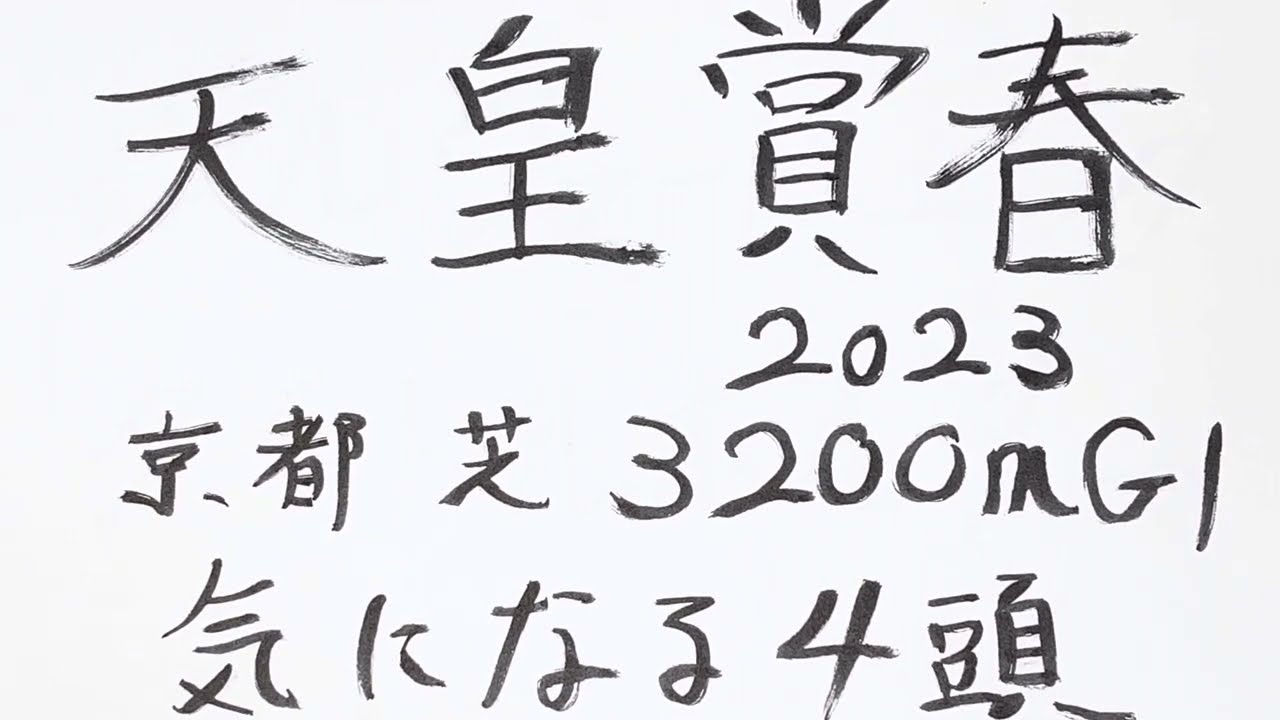 天皇賞春
2023
京都 芝 3200mG1
気になる4頭